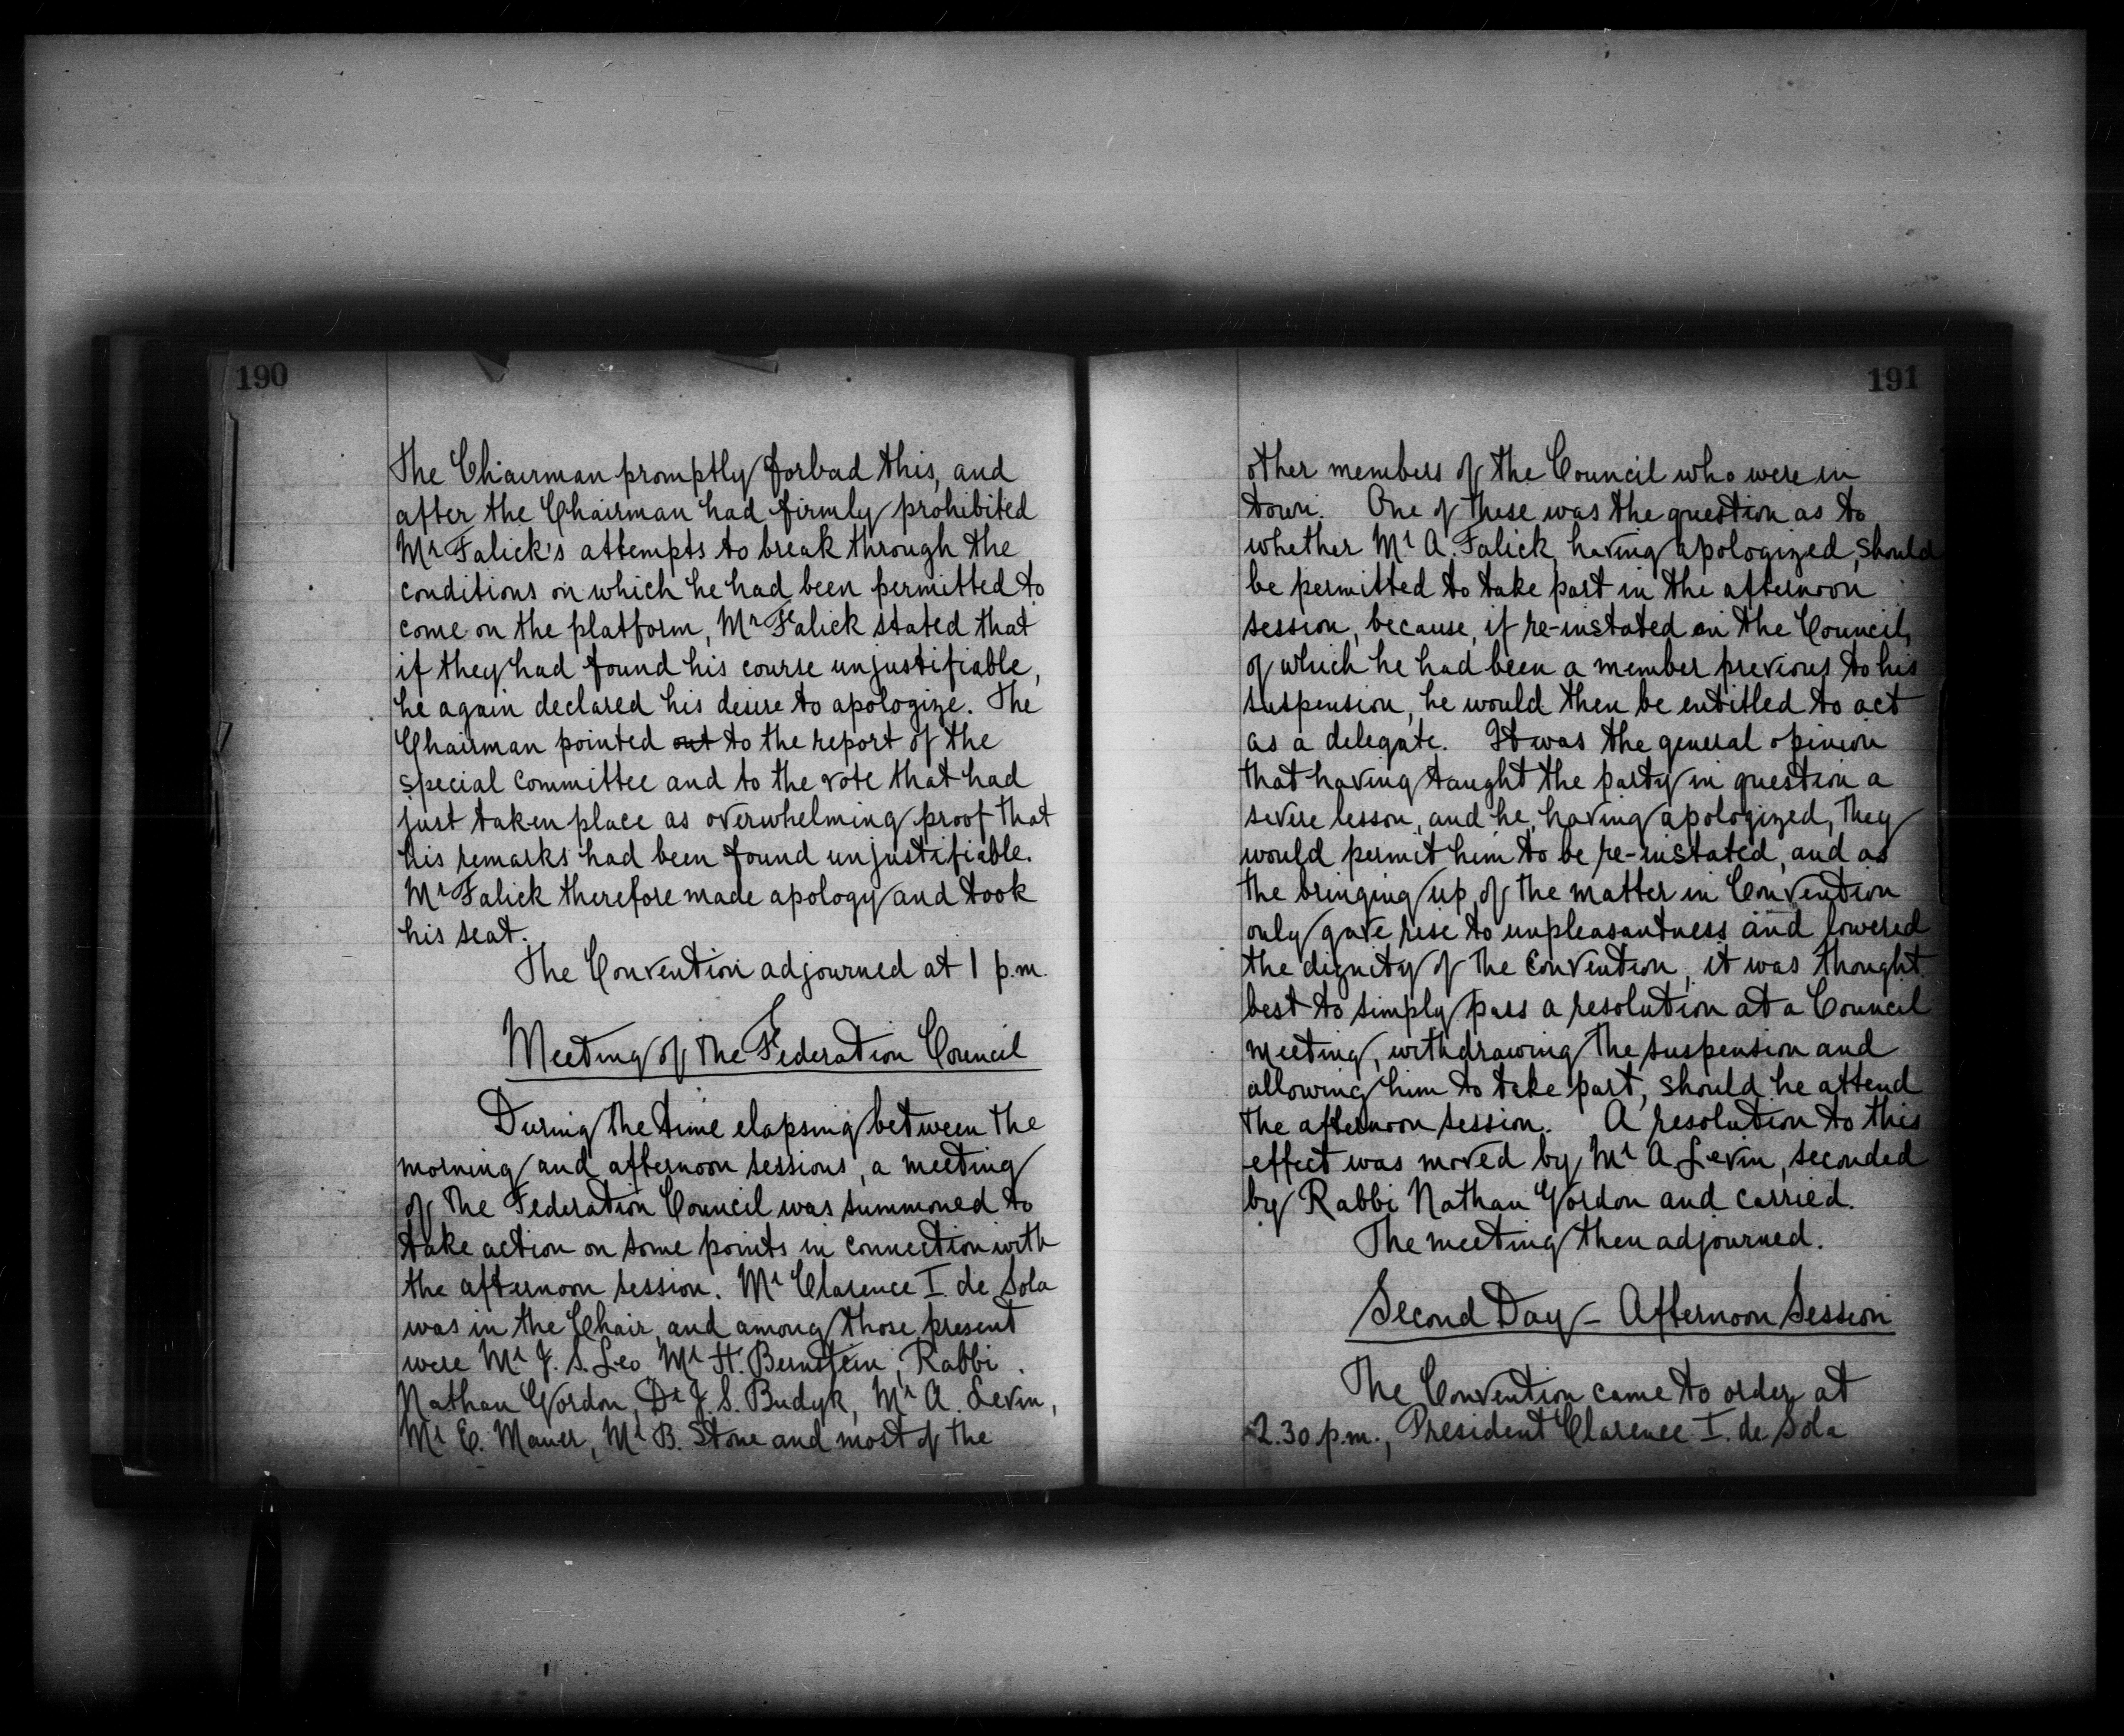 190
The Chairman promptly forbad this, and
after the Chairman had firmly prohibited
Mr Falick's attempts to break through the
conditions on which he had been permitted to
come on the platform, Mr Falick stated that
if they had found his course unjustifiable,
he again declared his desire to apologize. The
Chairman pointed out to the report of the
special committee and to the vote that had
just taken place as overwhelming proof that
his remarks had been found unjustifiable.
Mr Falick therefore made apology and took
his seat.
The Convention adjourned at 1 p.m.
Meeting of the Federation Council
During the time elapsing between the
morning and afternoon sessions, a meeting
of the Federation Council was summoned to
take action on some points in connection with
the afternoon session. Mr Clarence I. de Sola
was in the Chair, and among those present
were Mr J. S. Leo Mr H. Bernstein, Rabbi
Nathan Gordon, Dr J. S. Budyk, Mr A. Levin,
Mr E. Maner, Mr B. Stone and most of the
191
other members of the Council who were in
town. One of these was the question as to
whether Mr A. Falick, having apologized, should
be permitted to take part in the afternoon
session, because, if re-instated on the Council,
of which he had been a member previous to his
suspension, he would then be entitled to act
as a delegate. It was the general opinion
that having taught the party in question a
severe lesson, and he, having apologized, they
would permit him to be re-instated, and as
the bringing up of the matter in Convention
only gave rise to unpleasantness and lowered
the dignity of the Convention, it was thought
best to simply pass a resolution at a Council
meeting, withdrawing the suspension and
allowing him to take part, should he attend
the afternoon session. A resolution to this
effect was moved by Mr A Levin, seconded
by Rabbi Nathan Gordon and carried.
The meeting then adjourned.
Second Day - Afternoon Session
The Convention came to order at
2.30 p.m., President Clarence I. de Sola